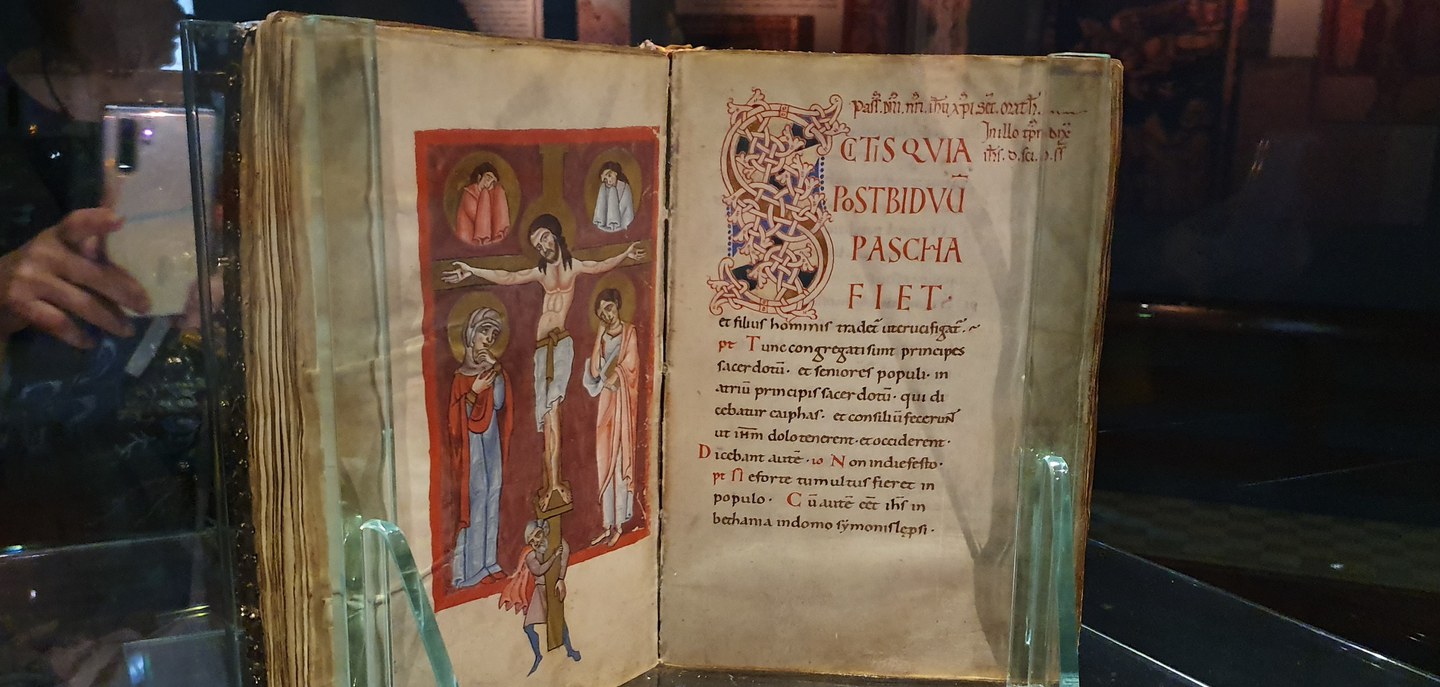 SCTIS QVIA
POST BIDVŪ
PASCHA
FIET·
et filius hominis tradet᷑ ut crucifigat᷑·
pt Tunc congregati sunt principes
sacerdotū· et seniores populi· in
atriū principis sacerdotū· qui di
cebatur caiphas· et consiliū fecerunt
ut ihm̄ dolo tenerent· et occiderent·
Dicebant autē· Non in die festo·
pt Ne forte tumultus fieret in
populo· Cū autē eēt ihs in
bethania in domo symonis lep̄si·